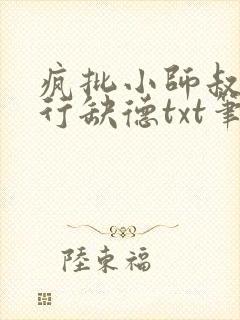 疯批小師叔
行缺德txt筆
陸東福